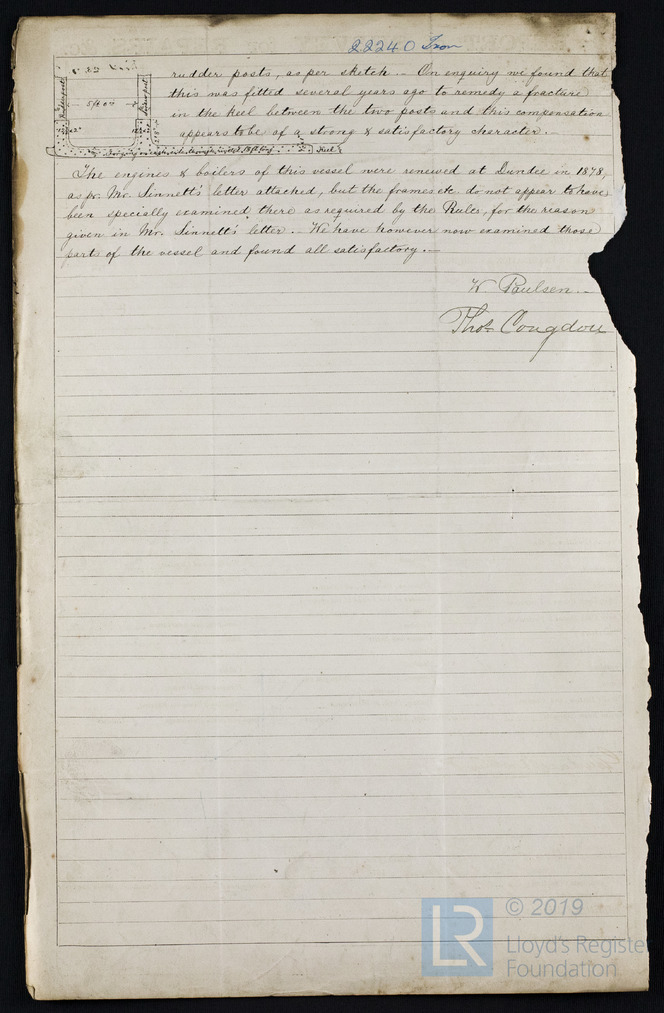 22240 Iron
rudder posts, as per sketch.- On enquiry we found that
this was fitted several years ago to remedy a fracture
in the keel between the two posts and this compensation
appears to be of a strong & satisfactory character.-
Rudder post
5 ft 0 in
Keel
The engines & boilers of this vessel were renewed at Dundee in 1878,
as pr. Mr. Sinnett's letter attached, but the frames etc do not appear to have
been specially examined there as required by the Rules, for the reason
given in Mr. Sinnett's letter.- We have however now examined those
parts of the vessel and found all satisfactory.-
W Paulsen.-
Thos Congdon
LR
© 2019
Lloyd's Register
Foundation